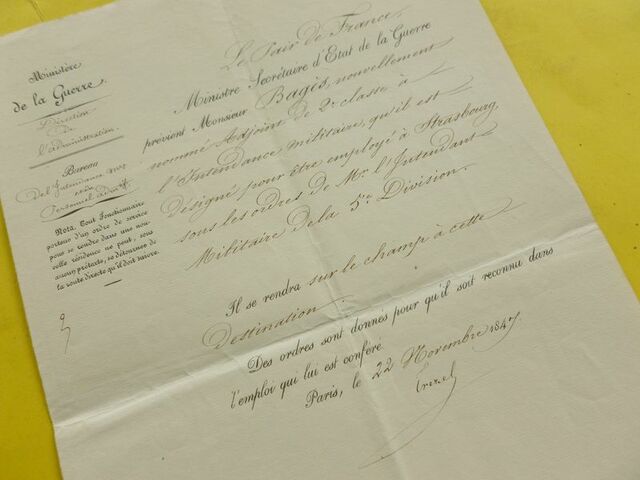 Ministère
de la Guerre.
Direction
De
l'administration.
Bureau
Del'Intendance mre
Personnel adtif
Nota. Tout Fonctionnaire
porteur d'un ordre de service
pour se rendre dans une nou-
velle résidence ne peut, sous
aucun prétexte, se détourner de
la route directe qu'il doit suivre.
Le Pair de France,
Ministre Secrétaire d'Etat de la Guerre
prévient Monsieur Bagis, nouvellement
nommé Adjoint de 2e classe à
l'Intendance militaire, qu'il est
désigné pour être employé à Strasbourg,
sous les ordres de Mr. l'Intendant
Militaire de la 5e Division.
Il se rendra sur le champ à cette
Destination.
Des ordres sont donnés pour qu'il soit reconnu dans
l'emploi qui lui est conféré
Paris, le 22 Novembre 1847.
Trezel